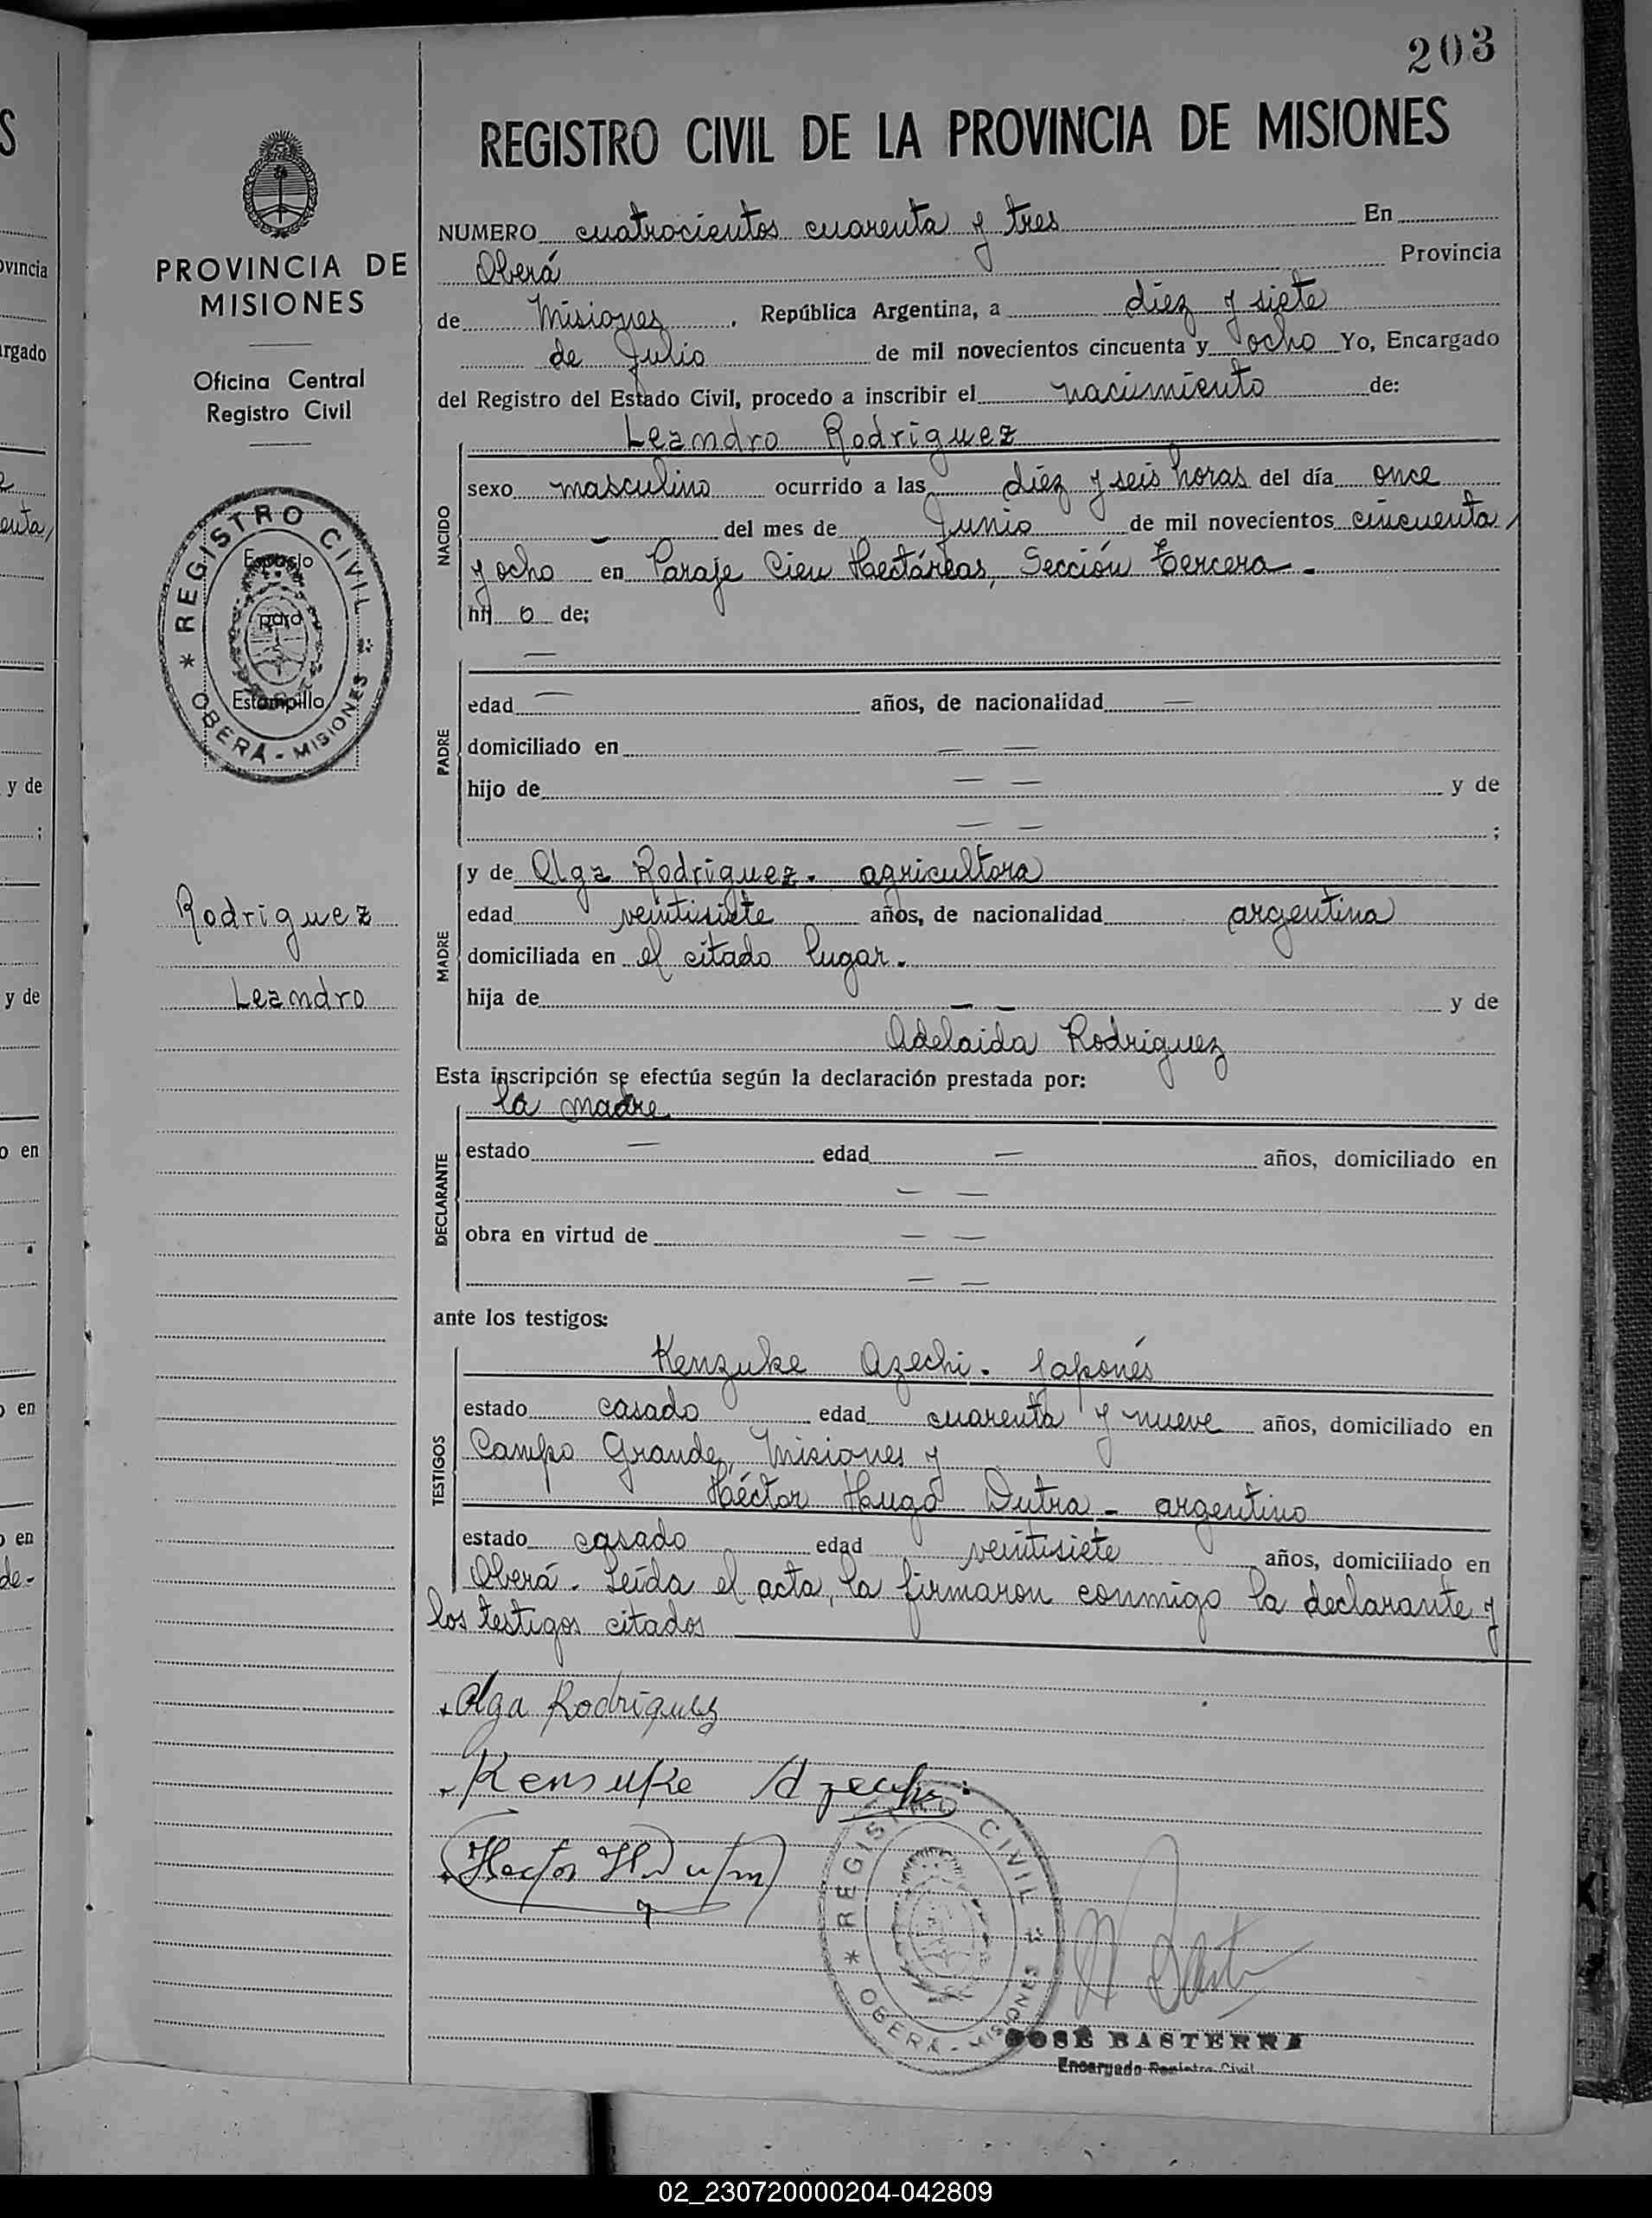 203
REGISTRO CIVIL DE LA PROVINCIA DE MISIONES
PROVINCIA DE
MISIONES
Oficina Central
Registro Civil
REGISTRO CIVIL
Espacio
para
Estampilla
OBERÁ - MISIONES
Rodriguez
Leandro
NUMERO cuatrocientos cuarenta y tres En
Oberá Provincia
de Misiones, República Argentina, a diez y siete
de Julio de mil novecientos cincuenta y ocho Yo, Encargado
del Registro del Estado Civil, procedo a inscribir el nacimiento de:
NACIDO
Leandro Rodriguez
sexo masculino ocurrido a las diez y seis horas del día once
— del mes de Junio de mil novecientos cincuenta
y ocho en Paraje Cien Hectáreas, Sección Tercera.-
hij o de;
PADRE
—
edad — años, de nacionalidad —
domiciliado en — —
hijo de — — y de
— — ;
MADRE
y de Olga Rodriguez. agricultora
edad veintisiete años, de nacionalidad argentina
domiciliada en el citado lugar.
hija de — — y de
Adelaida Rodriguez
Esta inscripción se efectúa según la declaración prestada por:
DECLARANTE
la madre
estado — edad — años, domiciliado en
— —
obra en virtud de — —
— —
ante los testigos:
TESTIGOS
Kenzuke Azechi. Japonés
estado casado edad cuarenta y nueve años, domiciliado en
Campo Grande, Misiones y
Héctor Hugo Dutra - argentino
estado casado edad veintisiete años, domiciliado en
Oberá. Leída el acta, la firmaron conmigo la declarante y
los testigos citados
Olga Rodriguez
Kensuke Azechi
Hector H Dutra
REGISTRO CIVIL
OBERÁ - MISIONES
JOSÉ BASTERRA
Encargado Registro Civil
ovincia
argado
enta,
y de
;
y de
o en
o en
o en
de-
02_230720000204-042809